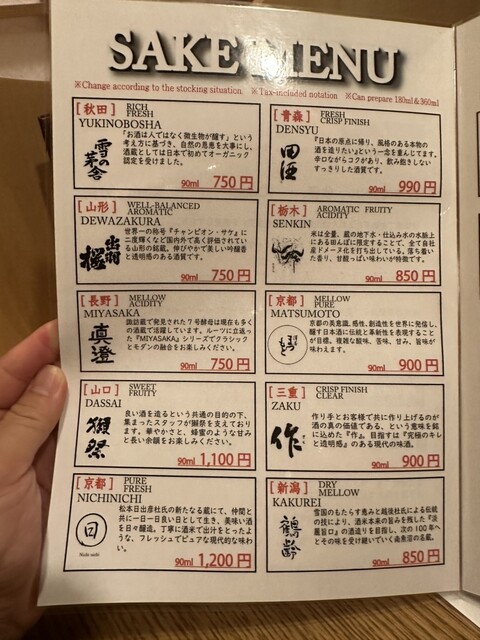 SAKE MENU
※Change according to the stocking situation. ※Tax-included notation ※Can prepare 180ml&360ml
[秋田] RICH
FRESH
YUKINOBOSHA
雪の茅舎
「お酒は人ではなく微生物が醸す」という
考え方に基づき、自然の恩恵を大事にし、
酒蔵としては日本で初めてオーガニック
認定を受けました。
90ml 750円
[山形] WELL-BALANCED
AROMATIC
DEWAZAKURA
出羽桜
世界一の称号『チャンピオン・サケ』に
二度輝くなど国内外で高く評価されてい
る山形の銘蔵。伸びやかで美しい吟醸香
と透明感のある酒質です。
90ml 750円
[長野] MELLOW
ACIDITY
MIYASAKA
真澄
諏訪蔵で発見された7号酵母は現在も多く
の酒蔵で活躍しています。ルーツに立返っ
た『MIYASAKA』シリーズでクラシック
とモダンの融合をお楽しみください。
90ml 750円
[山口] SWEET
FRUITY
DASSAI
獺祭
良い酒を造るという共通の目的の下、
集まったスタッフが獺祭を支えており
ます。華やかさと、蜂蜜のような甘み
と長い余韻をお楽しみください。
90ml 1,100円
[京都] PURE
FRESH
NICHINICHI
日
Nichi nichi
松本日出彦氏の新たなる蔵にて、仲間
と共に一日一日良い日として生き、美味い酒
を日々醸造。丁寧に酒米で出汁をとったよ
うな、フレッシュでピュアな現代的な味わ
い。
90ml 1,200円
[青森] FRESH
CRISP FINISH
DENSYU
田酒
『日本の原点に帰り、風格のある本物の
酒を造りたい』という一念を重んじてます。
辛口ながらコクがあり、飲み飽きしない
すっきりした酒質です。
90ml 990円
[栃木] AROMATIC FRUITY
ACIDITY
SENKIN
米は全量、蔵の地下水・仕込み水の水脈上
にある田んぼに限定することで、全て自社
産ドメーヌ化を打ち出している。落ち着い
た香り、甘酸っぱい味わいが特徴です。
90ml 850円
[京都] MELLOW
PURE
MATSUMOTO
まつもと
京都の美意識、感性、創造性を世界に発信し、
醸す日本酒に伝統と革新性を表現すること
が目標。複雑な酸味、苦味、甘み、旨味が
味わえます。
90ml 900円
[三重] CRISP FINISH
CLEAR
ZAKU
作
作り手とお客様で共に作り上げるのが
酒の真の価値である、という意味を銘
に込めた『作』。目指すは『究極のキレ
と透明感』のある現代の味酒。
90ml 900円
[新潟] DRY
MELLOW
KAKUREI
鶴齢
雪国のもたらす恵みと越後杜氏による伝統
の技により、酒米本来の旨みを残した『淡
麗旨口』の酒造りを目指し、次の100年へ
とその味を受け継いでいく南魚沼の名蔵。
90ml 850円